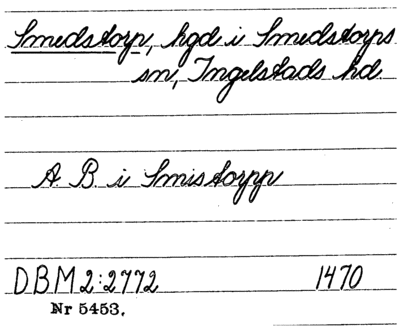 Smedstorp, hgd i Smedstorps
sn, Ingelstads hd
A. B. i Smistorpp
DBM 2:2772 1470
Nr 5453.